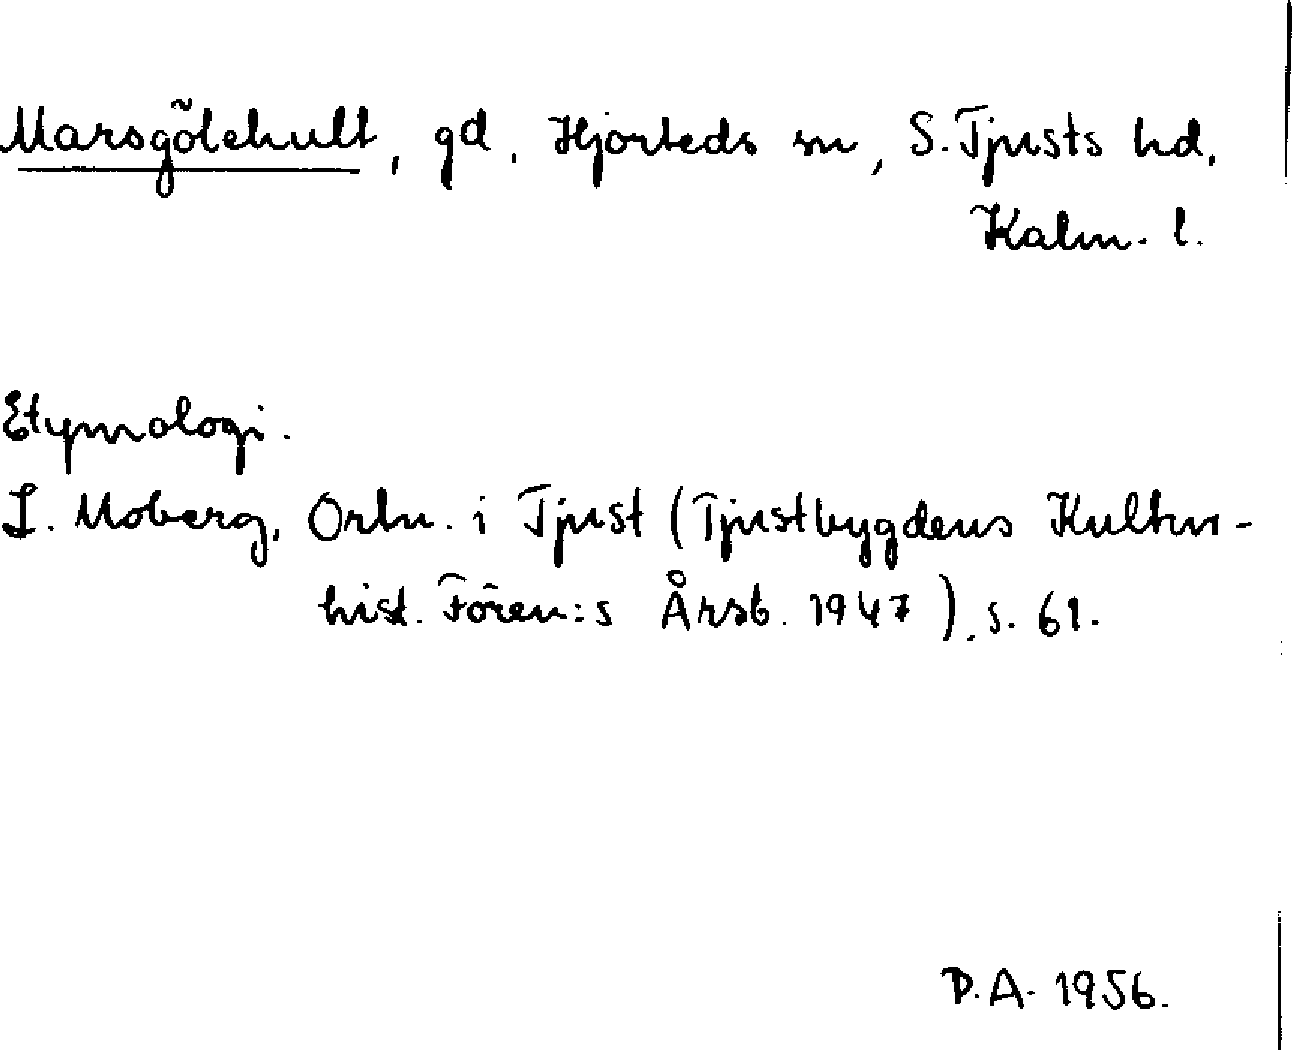 Marsgölehult, gd, Hjorteds sn, S. Tjusts hd,
Kalm. l.
Etymologi.
L. Moberg, Ortn. i Tjust (Tjustbygdens Kultur-
hist. Fören:s Årsb. 1947), s. 61.
D.A. 1956.